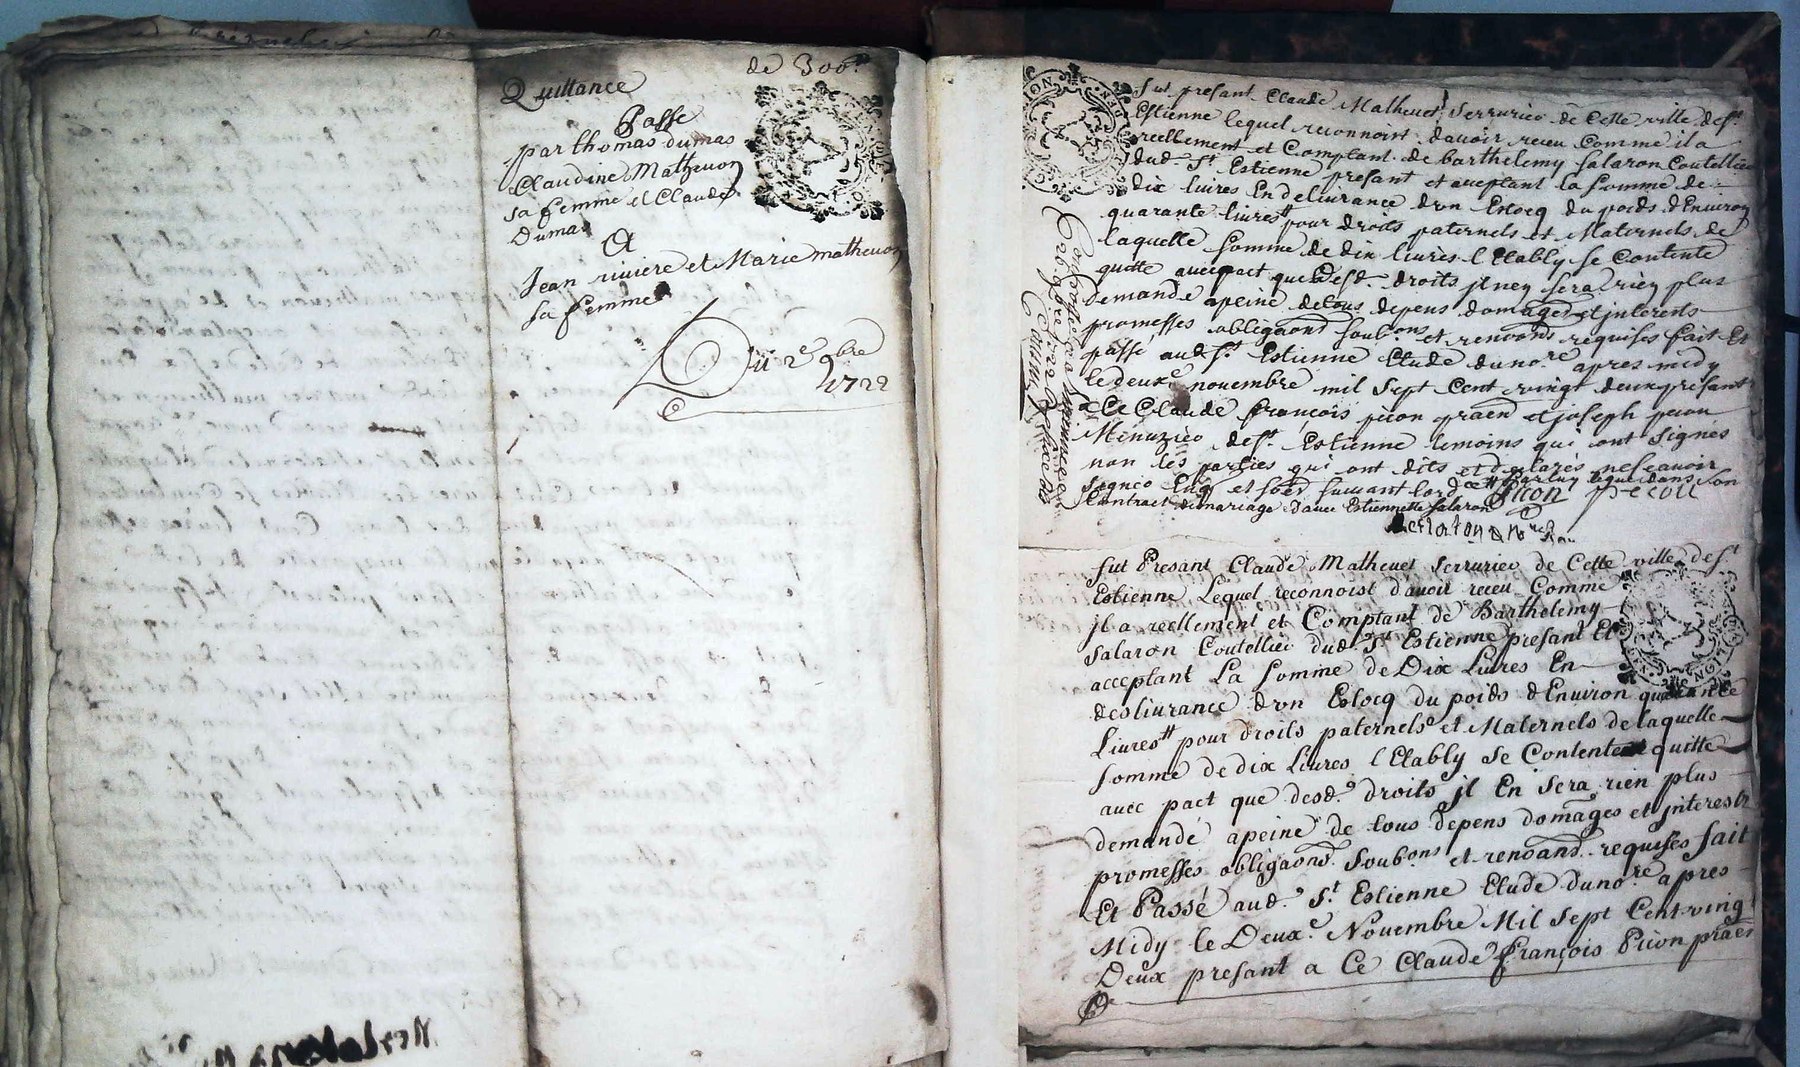 de 300ᵗ
Quittance
Passé
par thomas dumas
Claudine Matheuon
sa femme et Claude
Dumas
A
Jean riviere et Marie matheuon
sa femme
Du 2ᵉ 9bre
1722
fut presant Claude Matheuet Serrurier de Cette ville de Sᵗ
Estienne lequel reconnoist dauoir receu Comme il a
reellement et Comptant de barthelemy Salaron Coutellier
dud. Sᵗ Estienne presant et acceptant la Somme de
dix liures En deliurance dvn Estocq du poids d'Enuiron
quarante liures pour droits paternels et Maternels de
laquelle Somme de dix liures l Etably se Contente
quitte auec pact que desd. droits jl ney sera rien plus
demandé apeine de tous depens domages et jnterests
promesses obligaons soub.ons et renoans requises fait Et
passé aud Sᵗ Estienne Etude du no.re apres midy
le deuxe nouembre mil sept Cent vingt deux presant
a Ce Claude françois picon praen et joseph picon
Menuzier de Sᵗ Estienne temoins qui ont signés
non les parties qui ont dits et declarés ne scauoir
signer Enq et soed suiuant lord.ce dans son
Contract mariage dauec Estiennette Salaron
Picon
fut Presant Claude Matheuet Serrurier de Cette ville de Sᵗ
Estienne Lequel reconnoist d'auoir receu Comme
jl a reellement et Comptant de Barthelemy
Salaron Coutellier dud. Sᵗ Estienne presant Et
acceptant La Somme de Dix Liures En
desliurance dvn Estocq du poids d'Enuiron quarante
Liures pour droits paternels et Maternels de laquelle
somme de dix Liures l Etably se Contente quitte
auec pact que desd. droits jl En sera rien plus
demandé apeine de tous depens domages et jnterests
promesses obligaons Soub.ons et renoans requises fait
Et Passé aud. Sᵗ Estienne Etude du no.re apres
Midy le Deuxe. Nouembre Mil Sept Cent vingt
Deux presant a Ce Claude françois Picon praen